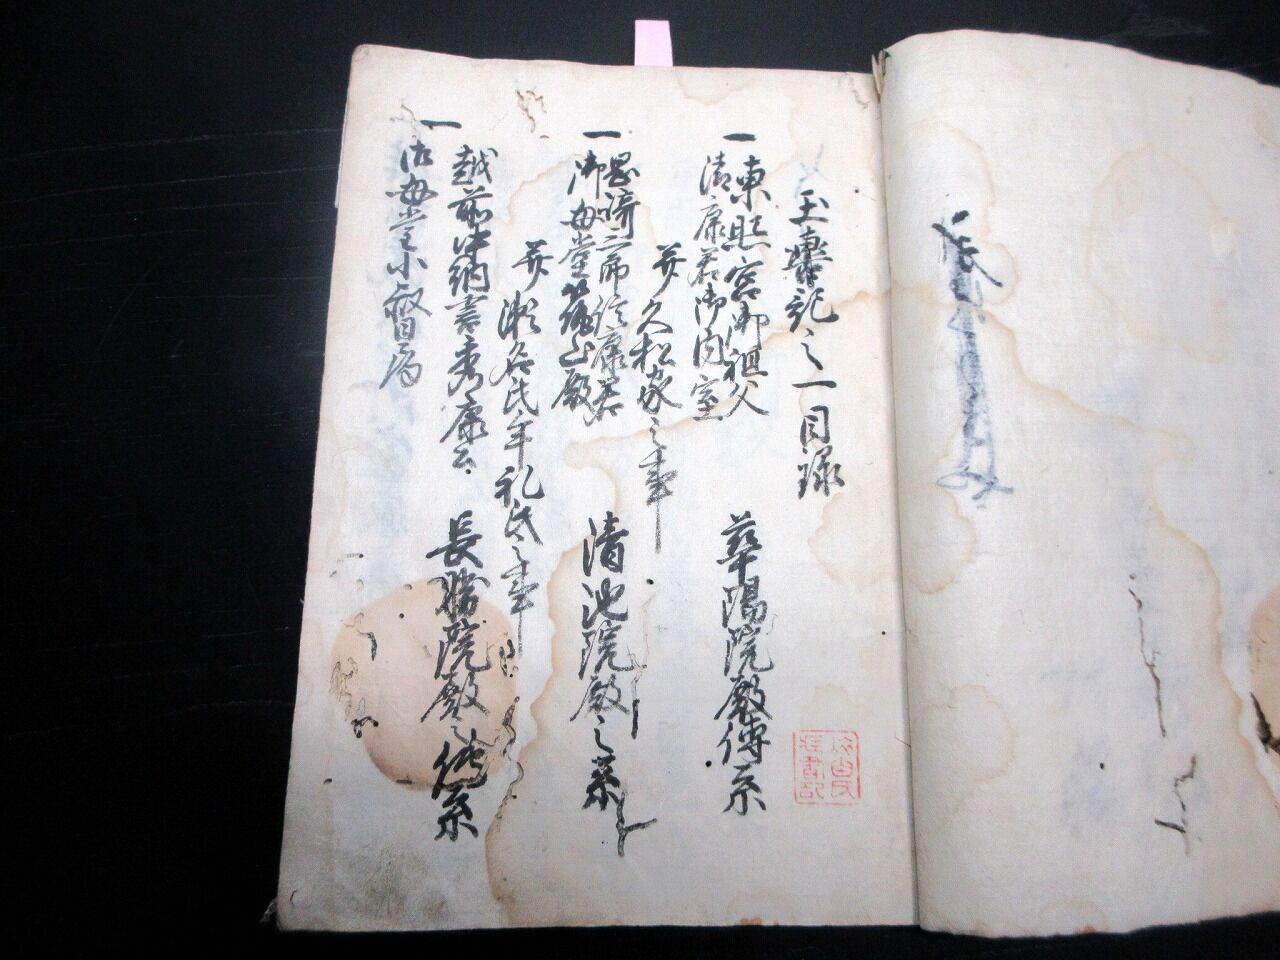 玉輿記之一目録
一 東照宮御祖父
清康君御内室 華陽院殿傳系
并久松家之事
一 岡崎三郎信康君
御母堂築山殿 清池院殿之叓
并瀬名氏年礼氏之事
一 越前中納言秀康公
御母堂小督局 長勝院殿之傳系